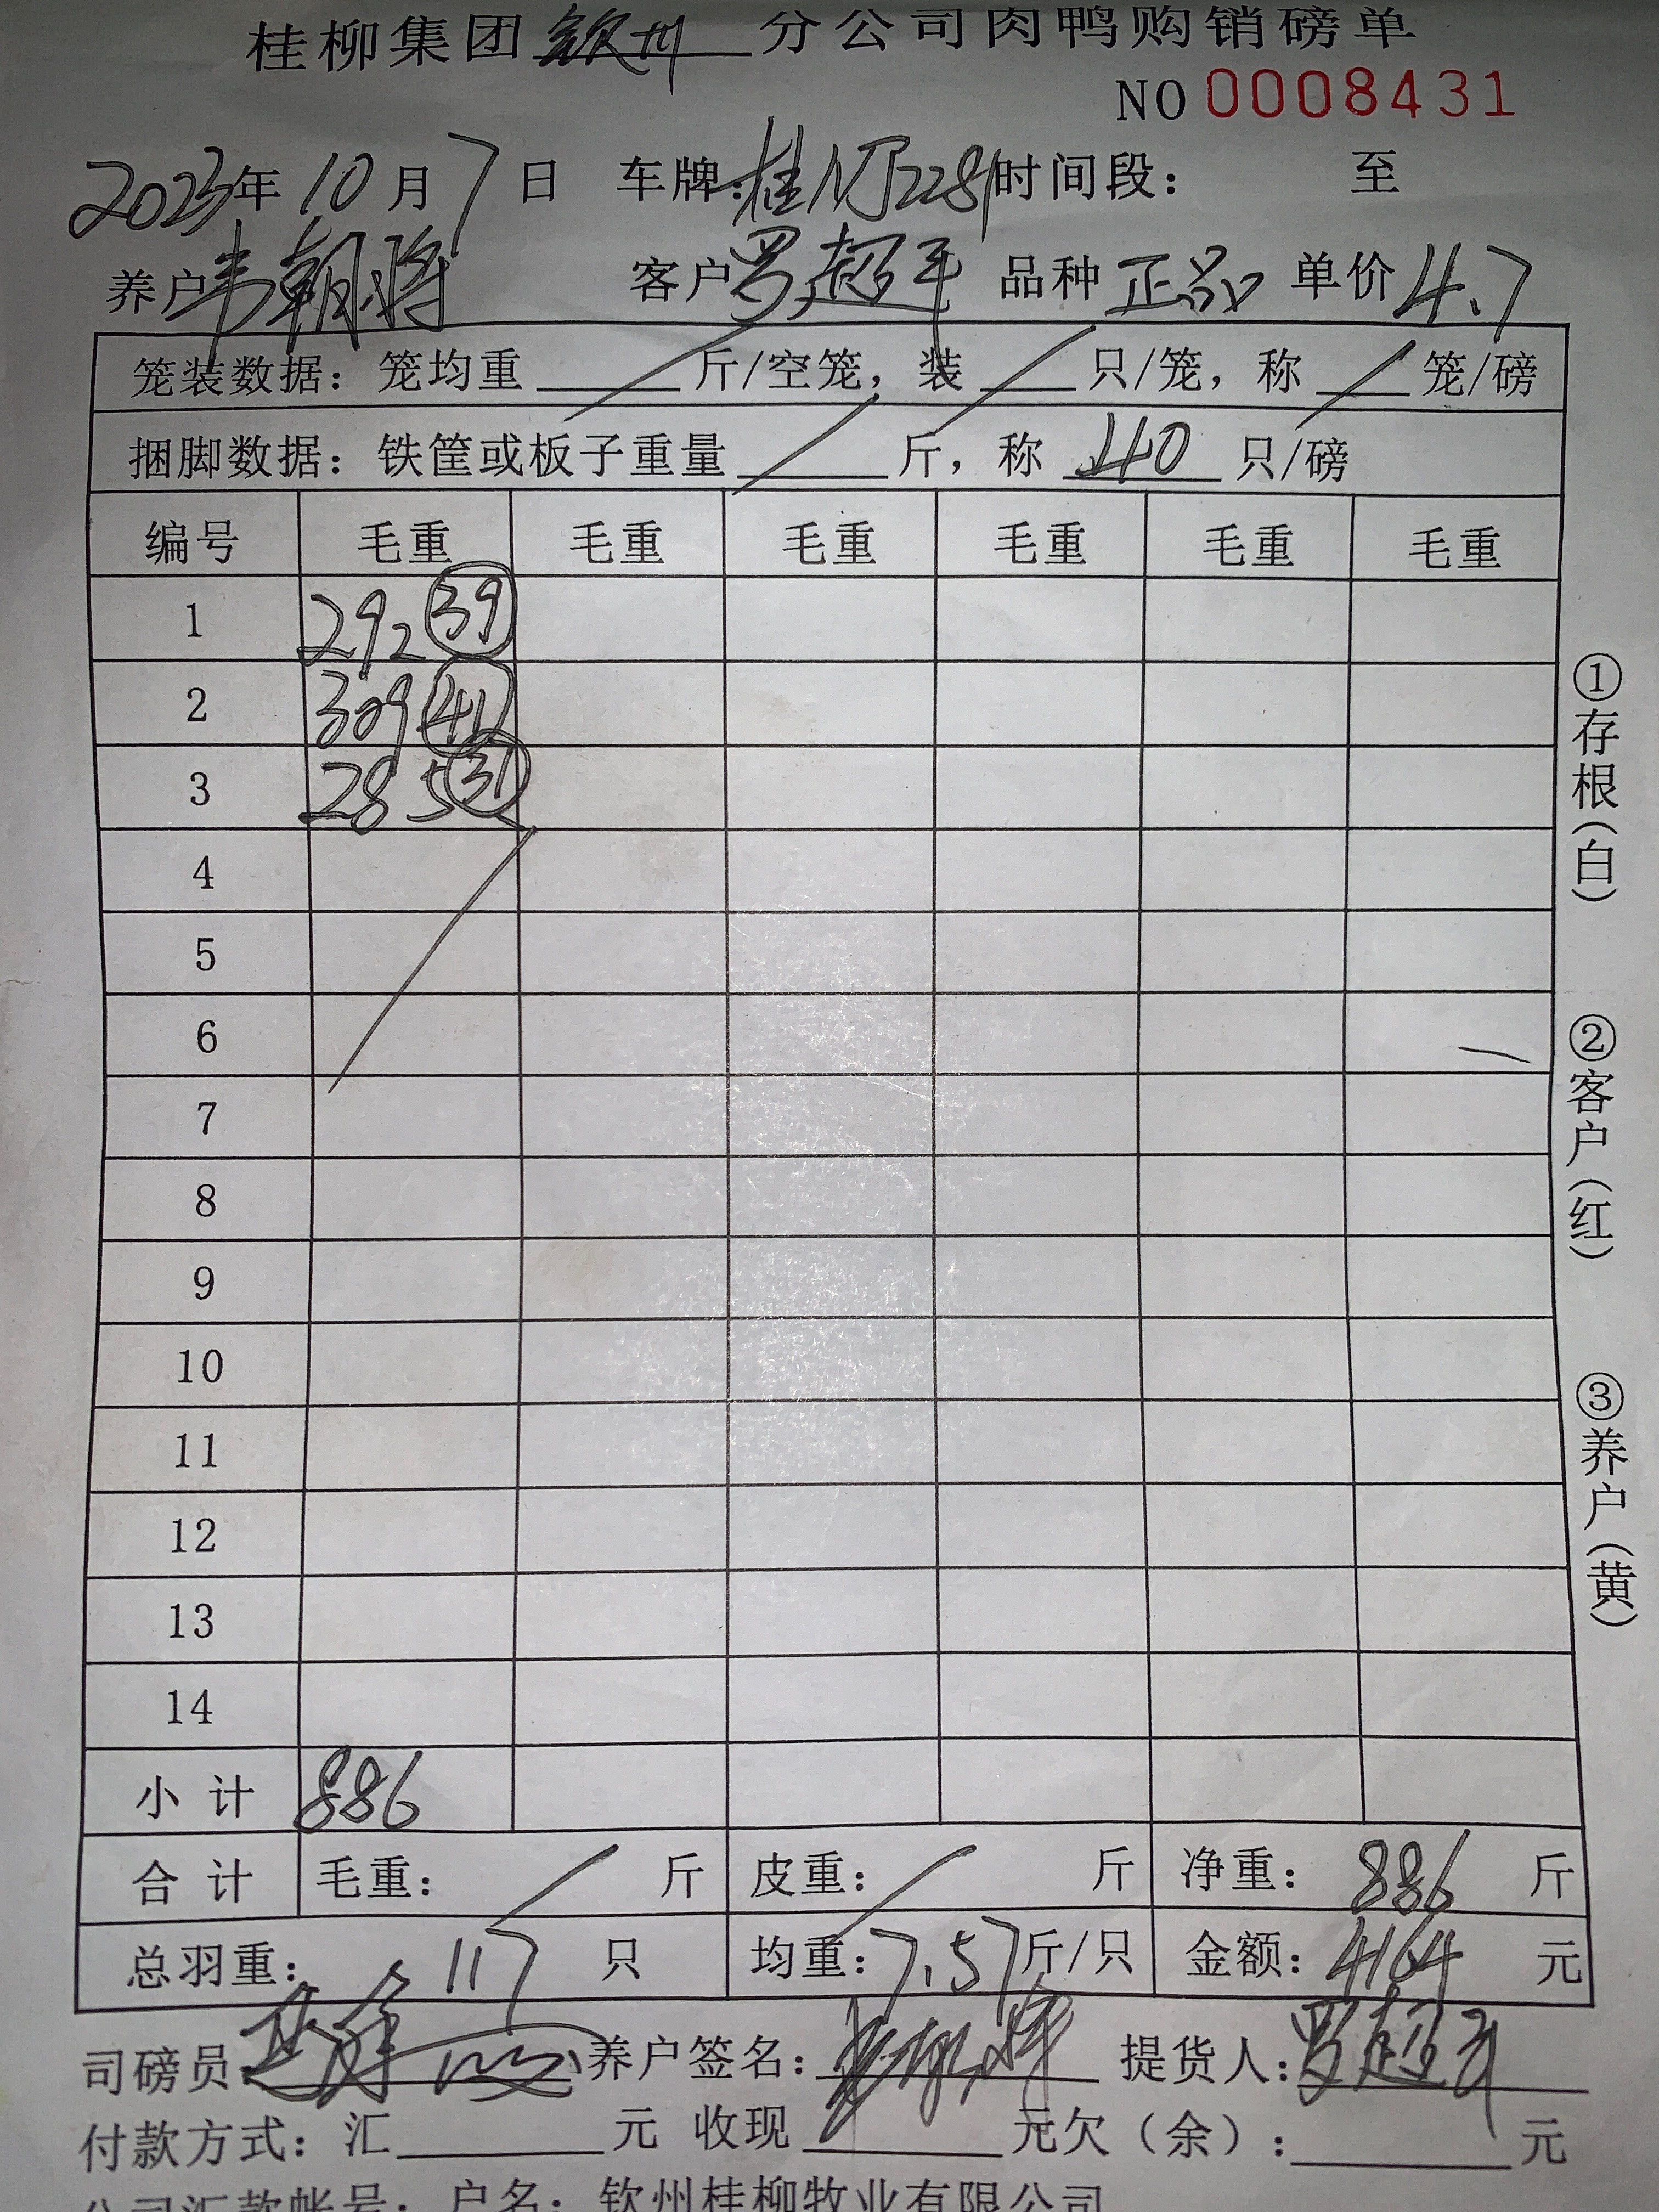 桂柳集团钦州分公司肉鸭购销磅单
NO 0008431
2023年10月7日 车牌:桂N 时间段: 至
养户韦朝将 客户罗超平 品种正品 单价4.7
笼装数据:笼均重 斤/空笼,装 只/笼,称 笼/磅
捆脚数据:铁筐或板子重量 斤,称 40 只/磅
编号 毛重 毛重 毛重 毛重 毛重 毛重
1 292 39
2 309 41
3 285
4
5
6
7
8
9
10
11
12
13
14
小计 886
合计 毛重: 斤 皮重: 斤 净重: 886 斤
总羽重: 117 只 均重:7.57斤/只 金额:4164 元
司磅员 养户签名: 提货人:罗超平
付款方式:汇 元 收现 元欠(余): 元
公司汇款帐号:户名:钦州桂柳牧业有限公司
①存根(白)
②客户(红)
③养户(黄)